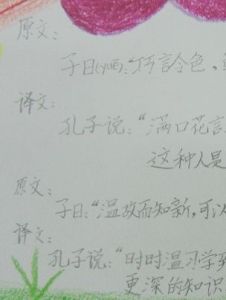 原文:
子曰(yuē):"巧言令色,
译文:
孔子说:"满口花言
这种人是
原文:
子曰:"温故而知新,可以
译文:
孔子说:"时时温习学
更深的知识